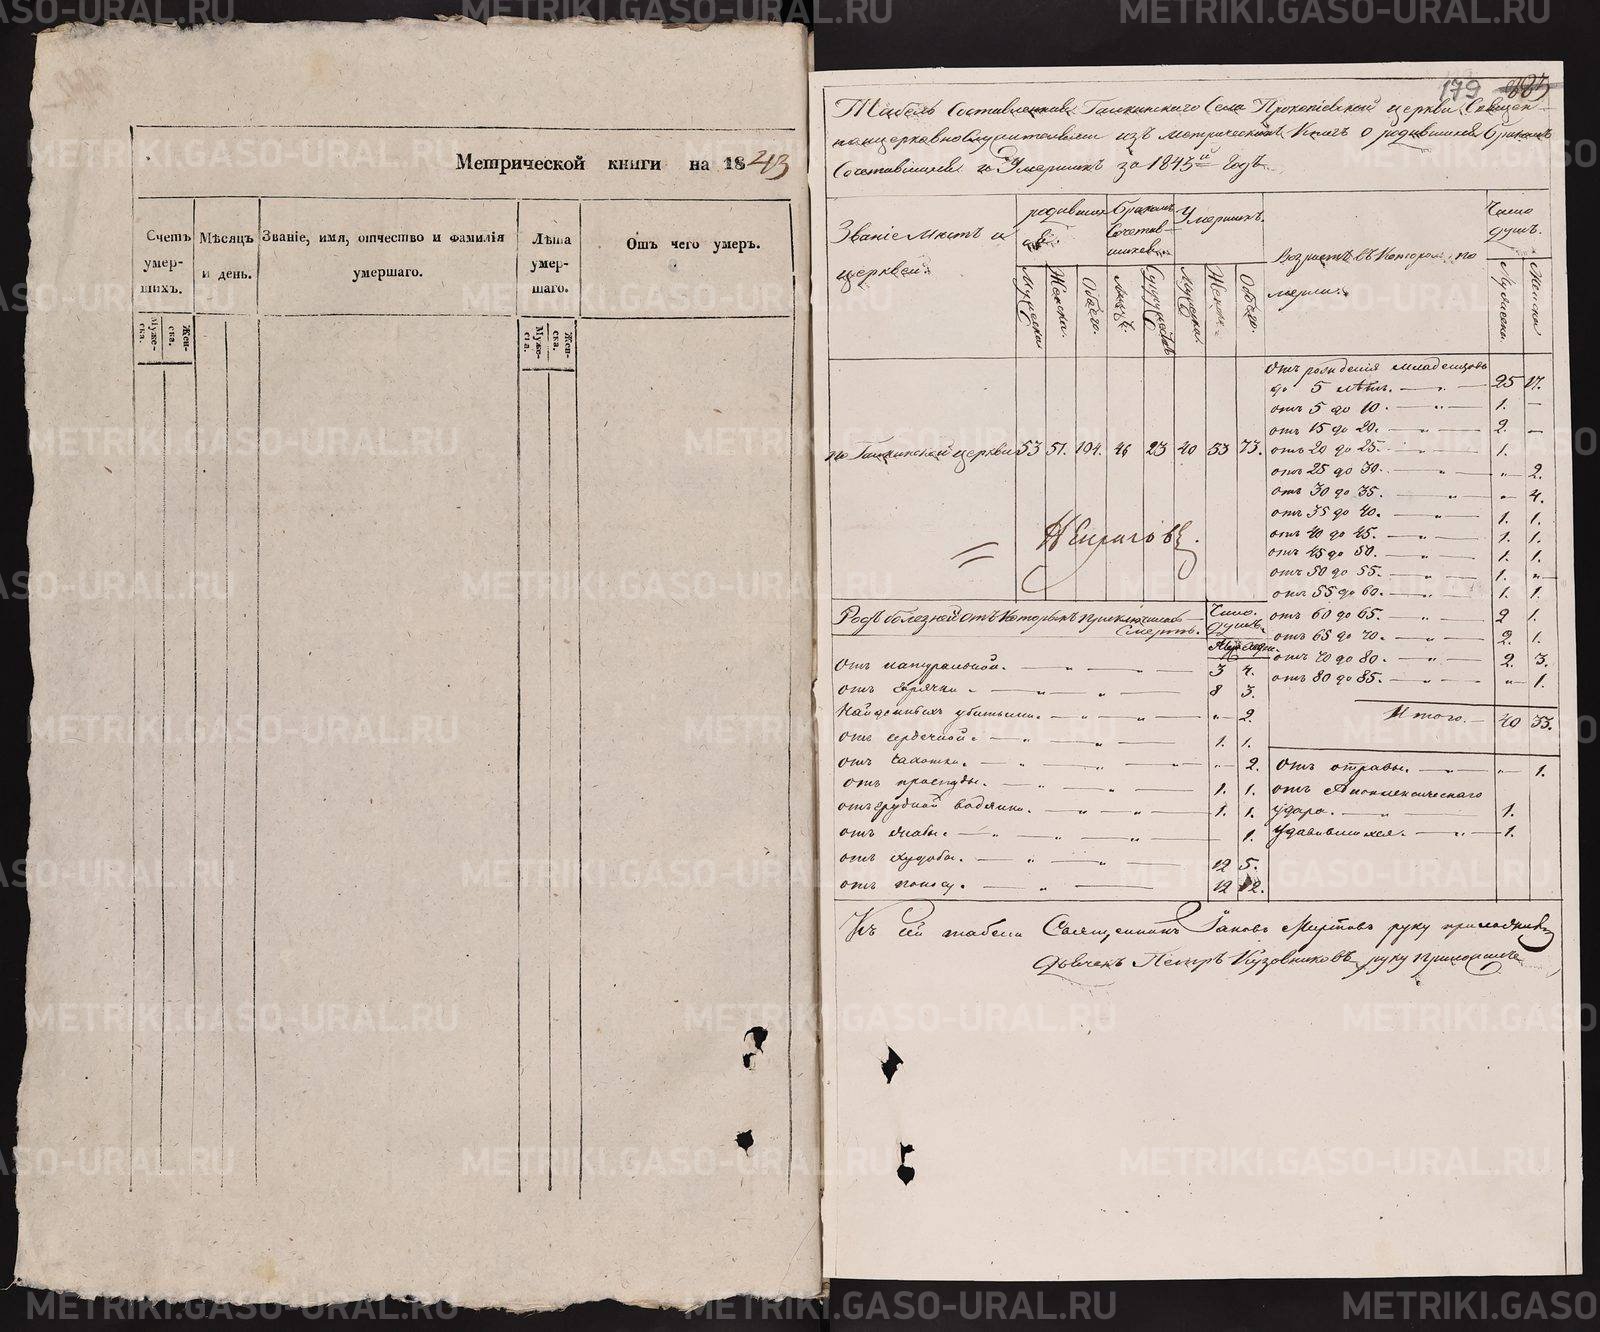 Метрической книги на 1843
Счетъ умер-шихъ.
Мѣсяцъ и день.
Званіе, имя, отчество и фамилія умершаго.
Лѣта умер-шаго.
Отъ чего умеръ.
Муже-ска.
Жен-ска.
Муже-ска.
Жен-ска.
179
Табель составленная Села Прокопіевской церкви Священ-
ноцерковнослужителями изъ метрическихъ Книгъ о родившихся бракомъ
Сочетавшихся и Умершихъ за 1843й Годъ
Званіе мѣстъ и церквей.
родивших-ся.
Бракомъ Сочетав-шихся.
Умершихъ.
Возрастъ въ которомъ по мерли.
Число душъ.
Мужеска.
Женска.
Обоего.
Лицъ.
Супружествъ
Мужеска.
Женск.
Обоего.
Мужеска.
Женска
отъ рожденія младенцовъ
до 5 лѣтъ. — „ — 25 17.
отъ 5 до 10. — „ — 1. —
отъ 15 до 20. — „ — 2. —
по церкви 53 51. 104. 46 23 40 33 73.
отъ 20 до 25. — „ — 1.
отъ 25 до 30. — „ — „ 2.
отъ 30 до 35. — „ — „ 4.
отъ 35 до 40. — „ — 1. 1.
отъ 40 до 45. — „ — 1. 1.
отъ 45 до 50. — „ — 1. 1.
отъ 50 до 55. — „ — 1. „
отъ 55 до 60. — „ — 1. 1.
отъ 60 до 65. — „ — 2 1.
отъ 65 до 70. — „ — 2. 1.
отъ 70 до 80. — „ — 2. 3.
отъ 80 до 85. — „ — „ 1.
Итого. — 40 33.
Родъ болезней отъ Которыхъ приключилась Смерть.
Число. душъ.
отъ натуральной. — „ — 3 4.
отъ горячки. — „ — 8 3.
Найденныхъ убитыми. — „ — „ 2.
отъ сердечной. — „ — 1. 1.
отъ чахотки. — „ — „ 2.
отъ простуды. — „ — 1. 1.
отъ грудной водянки. — „ — 1. 1.
отъ жабы. — „ — 1.
отъ худобы. — „ — 12 5.
отъ поносу. — „ — 12 12.
отъ отравы. — „ — „ 1.
отъ Апоплексическаго
удара. — „ — 1.
Удавившихся. — „ — 1.
Къ сей табели Священникъ Іаковъ руку приложилъ
Дьячекъ Петръ руку приложилъ
METRIKI.GASO-URAL.RU